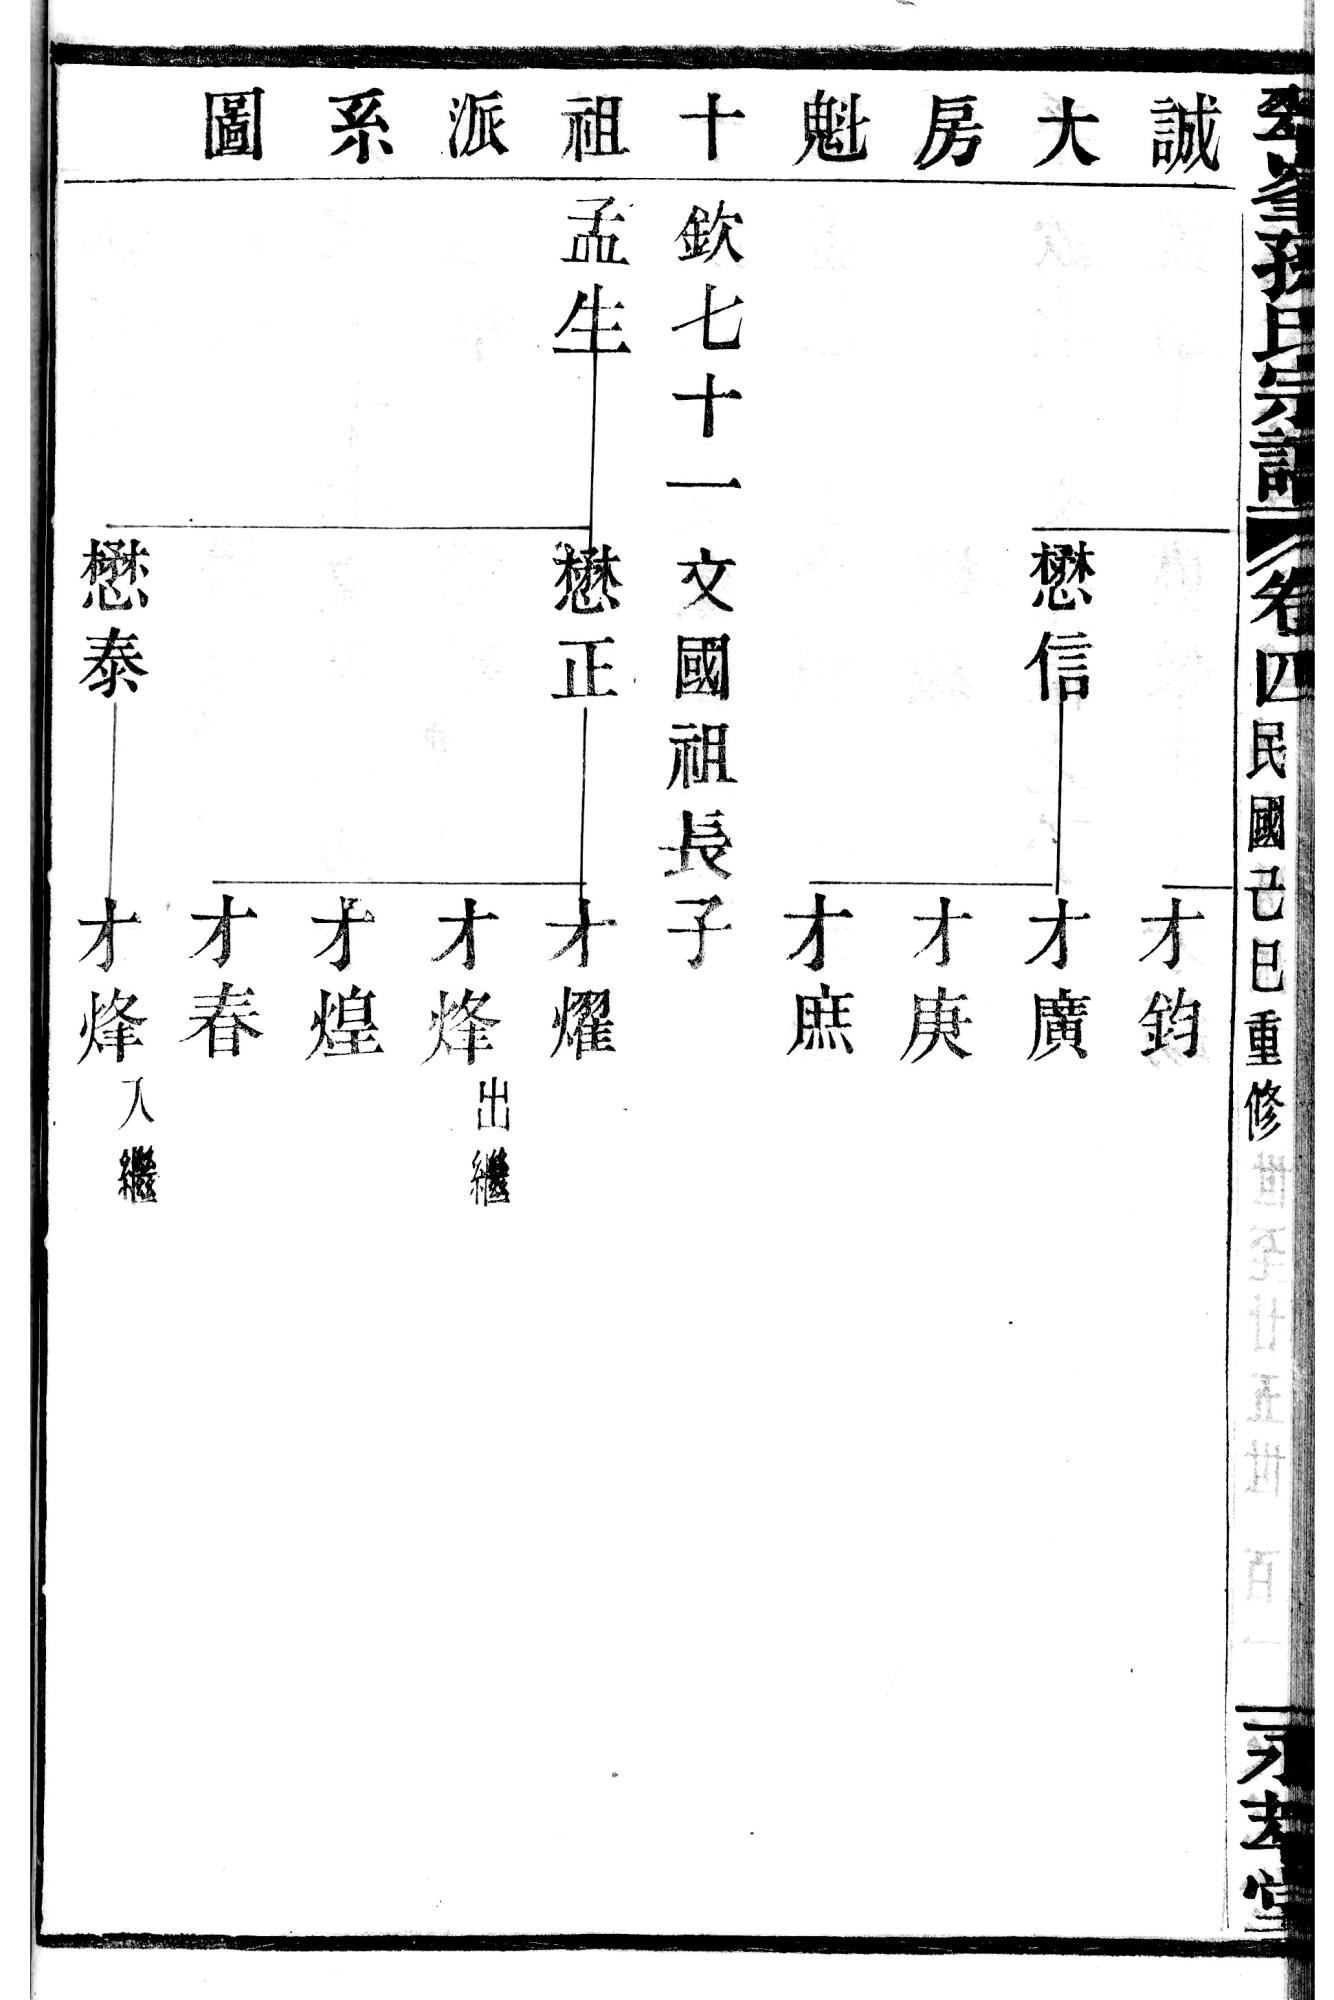 峯孫氏宗譜
卷四
民國己巳重修
誠大房魁十祖派系圖
才鈞
懋信
才廣
才庚
才庶
欽七十一文國祖長子
孟生
懋正
才燿
才烽
出繼
才煌
才春
懋泰
才烽
入繼